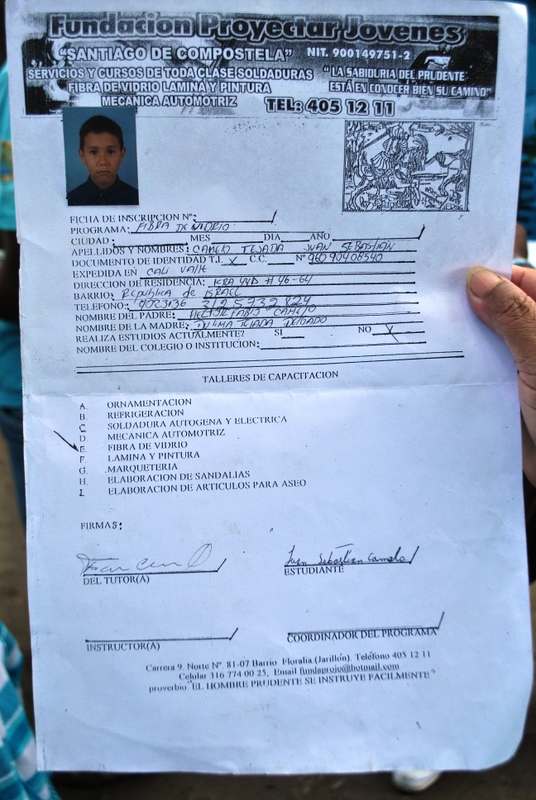 Fundacion Proyectar Jovenes
"SANTIAGO DE COMPOSTELA" NIT. 900149751-2
SERVICIOS Y CURSOS DE TODA CLASE SOLDADURAS
FIBRA DE VIDRIO LAMINA Y PINTURA
MECANICA AUTOMOTRIZ
"LA SABIDURIA DEL PRUDENTE
ESTÁ EN CONOCER BIEN SU CAMINO"
TEL: 405 12 11
FICHA DE INSCRIPCION Nº:
PROGRAMA: FIBRA DE VIDRIO
CIUDAD: MES DIA AÑO
APELLIDOS Y NOMBRES: CAMELO TEJADA JUAN SEBASTIAN
DOCUMENTO DE IDENTIDAD T.I. X C.C. Nº 96090406540
EXPEDIDA EN CALI Valle
DIRECCION DE RESIDENCIA: KRA 44D # 46-64
BARRIO: Republica de ISRAEL
TELEFONO: 4023136 3195732824
NOMBRE DEL PADRE: HECTOR FABIO CAMELO
NOMBRE DE LA MADRE: TEJADA DELGADO
REALIZA ESTUDIOS ACTUALMENTE? SI NO X
NOMBRE DEL COLEGIO O INSTITUCION:
TALLERES DE CAPACITACION
A. ORNAMENTACION
B. REFRIGERACION
C. SOLDADURA AUTOGENA Y ELECTRICA
D. MECANICA AUTOMOTRIZ
E. FIBRA DE VIDRIO
F. LAMINA Y PINTURA
G. MARQUETERIA
H. ELABORACION DE SANDALIAS
I. ELABORACION DE ARTICULOS PARA ASEO
FIRMAS:
Juan Sebastian Camelo
DEL TUTOR(A) ESTUDIANTE
INSTRUCTOR(A) COORDINADOR DEL PROGRAMA
Carrera 9. Norte Nº. 81-07 Barrio Floralia (Jarillón). Teléfono 405 12 11
Celular 316 774 00 25, Email fundaprojo@hotmail.com
proverbio "EL HOMBRE PRUDENTE SE INSTRUYE FACILMENTE"